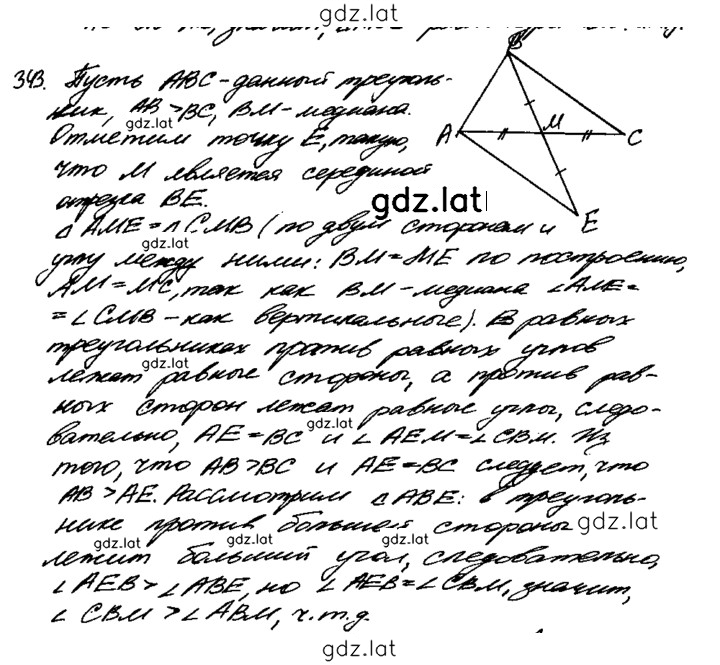 gdz.lat
343. Пусть ABC - данный треуголь-
ник, AB > BC, BM - медиана.
gdz.lat
Отметим точку E, такую,
что M является серединой
отрезка BE.
B
A
M
C
E
gdz.lat
△ AME = △ CMB (по двум сторонам и
gdz.lat
углу между ними: BM = ME по построению,
AM = MC, так как BM - медиана ∠AME =
= ∠CMB - как вертикальные). В равных
треугольниках против равных углов
gdz.lat
лежат равные стороны, а против рав-
ных сторон лежат равные углы, следо-
gdz.lat
вательно, AE = BC и ∠AEM = ∠CBM. Из
того, что AB > BC и AE = BC следует, что
AB > AE. Рассмотрим △ABE: в треуголь-
нике против большей стороны
gdz.lat
gdz.lat gdz.lat gdz.lat
лежит больший угол, следовательно,
∠AEB > ∠ABE, но ∠AEB = ∠CBM, значит,
∠CBM > ∠ABM, ч.т.д.
gdz.lat